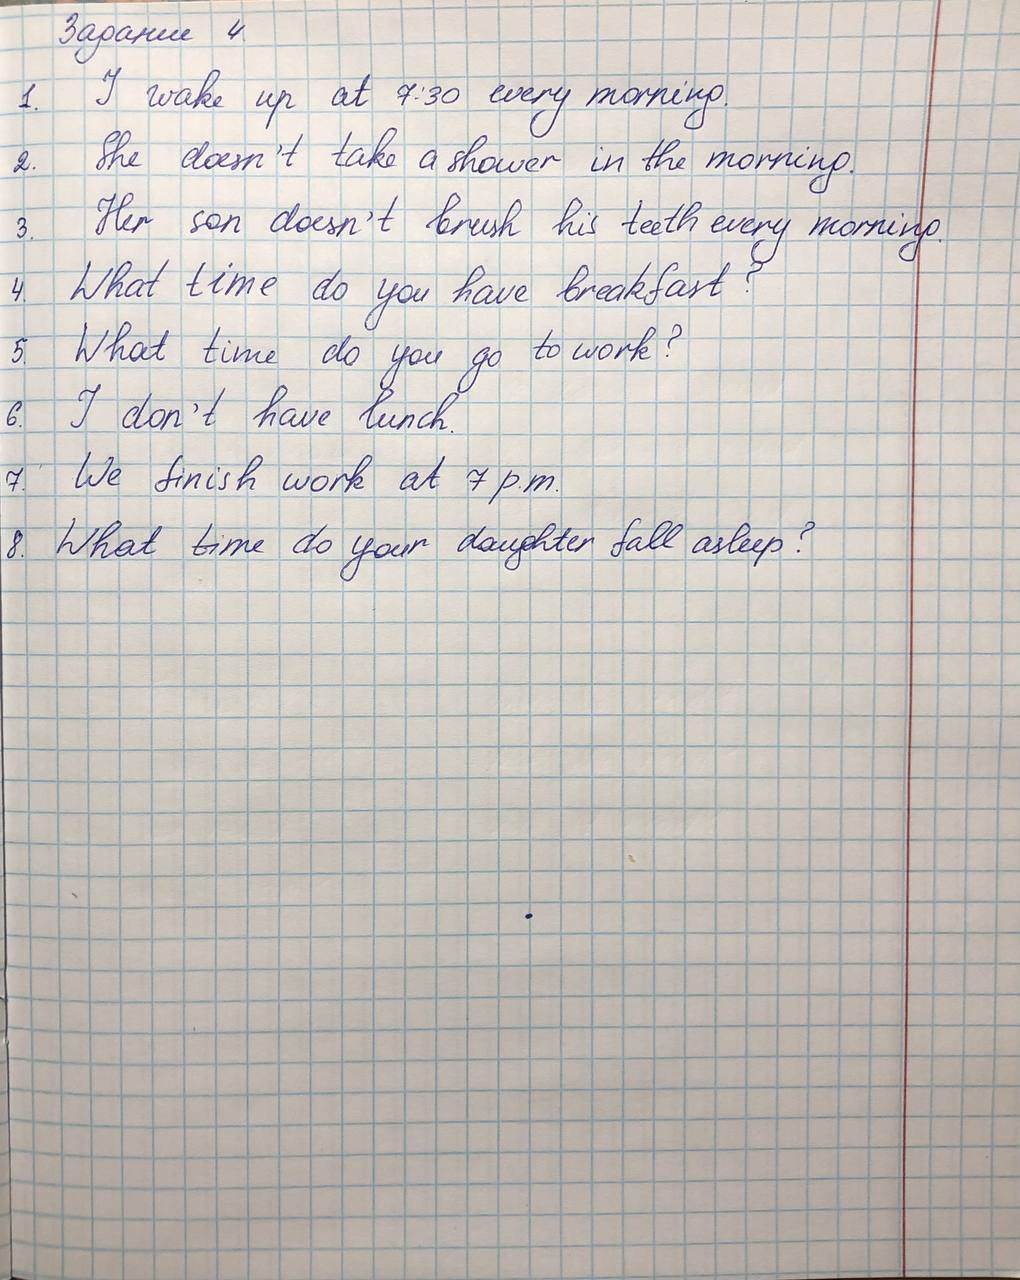 Задание 4
1. I wake up at 7:30 every morning.
2. She doesn't take a shower in the morning.
3. Her son doesn't brush his teeth every morning.
4. What time do you have breakfast?
5. What time do you go to work?
6. I don't have lunch.
7. We finish work at 7 p.m.
8. What time do your daughter fall asleep?